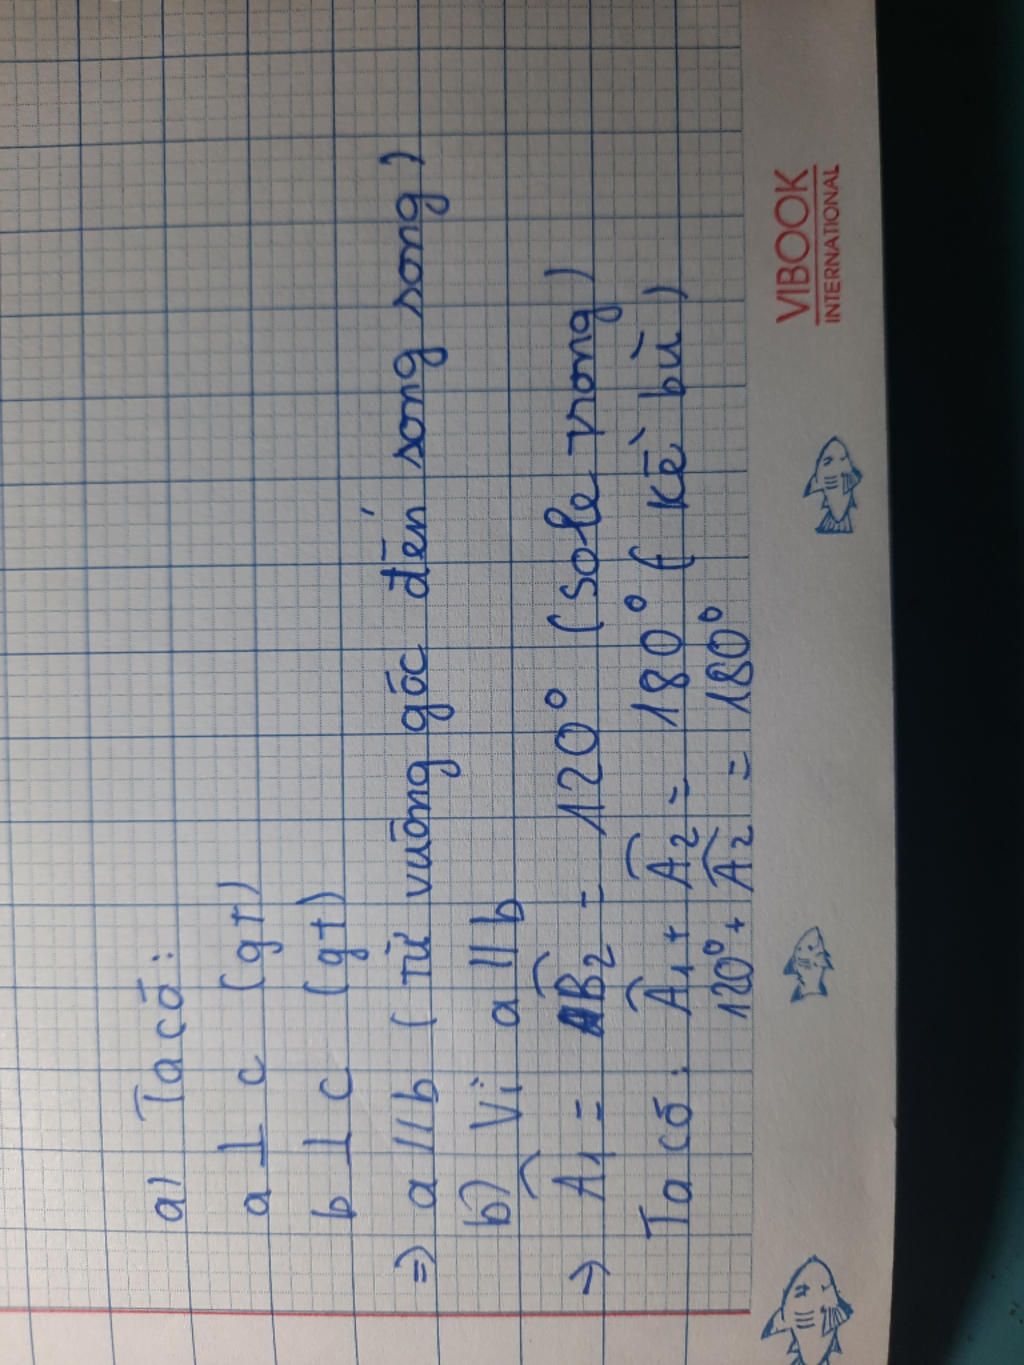 a) Ta có:
a ⊥ c (gt)
b ⊥ c (gt)
=> a // b ( từ vuông góc đến song song )
b) Vì a // b
-> Â₁ = B̂₂ = 120° ( sole trong )
Ta có: Â₁ + Â₂ = 180° ( kề bù )
120° + Â₂ = 180°
VIBOOK
INTERNATIONAL